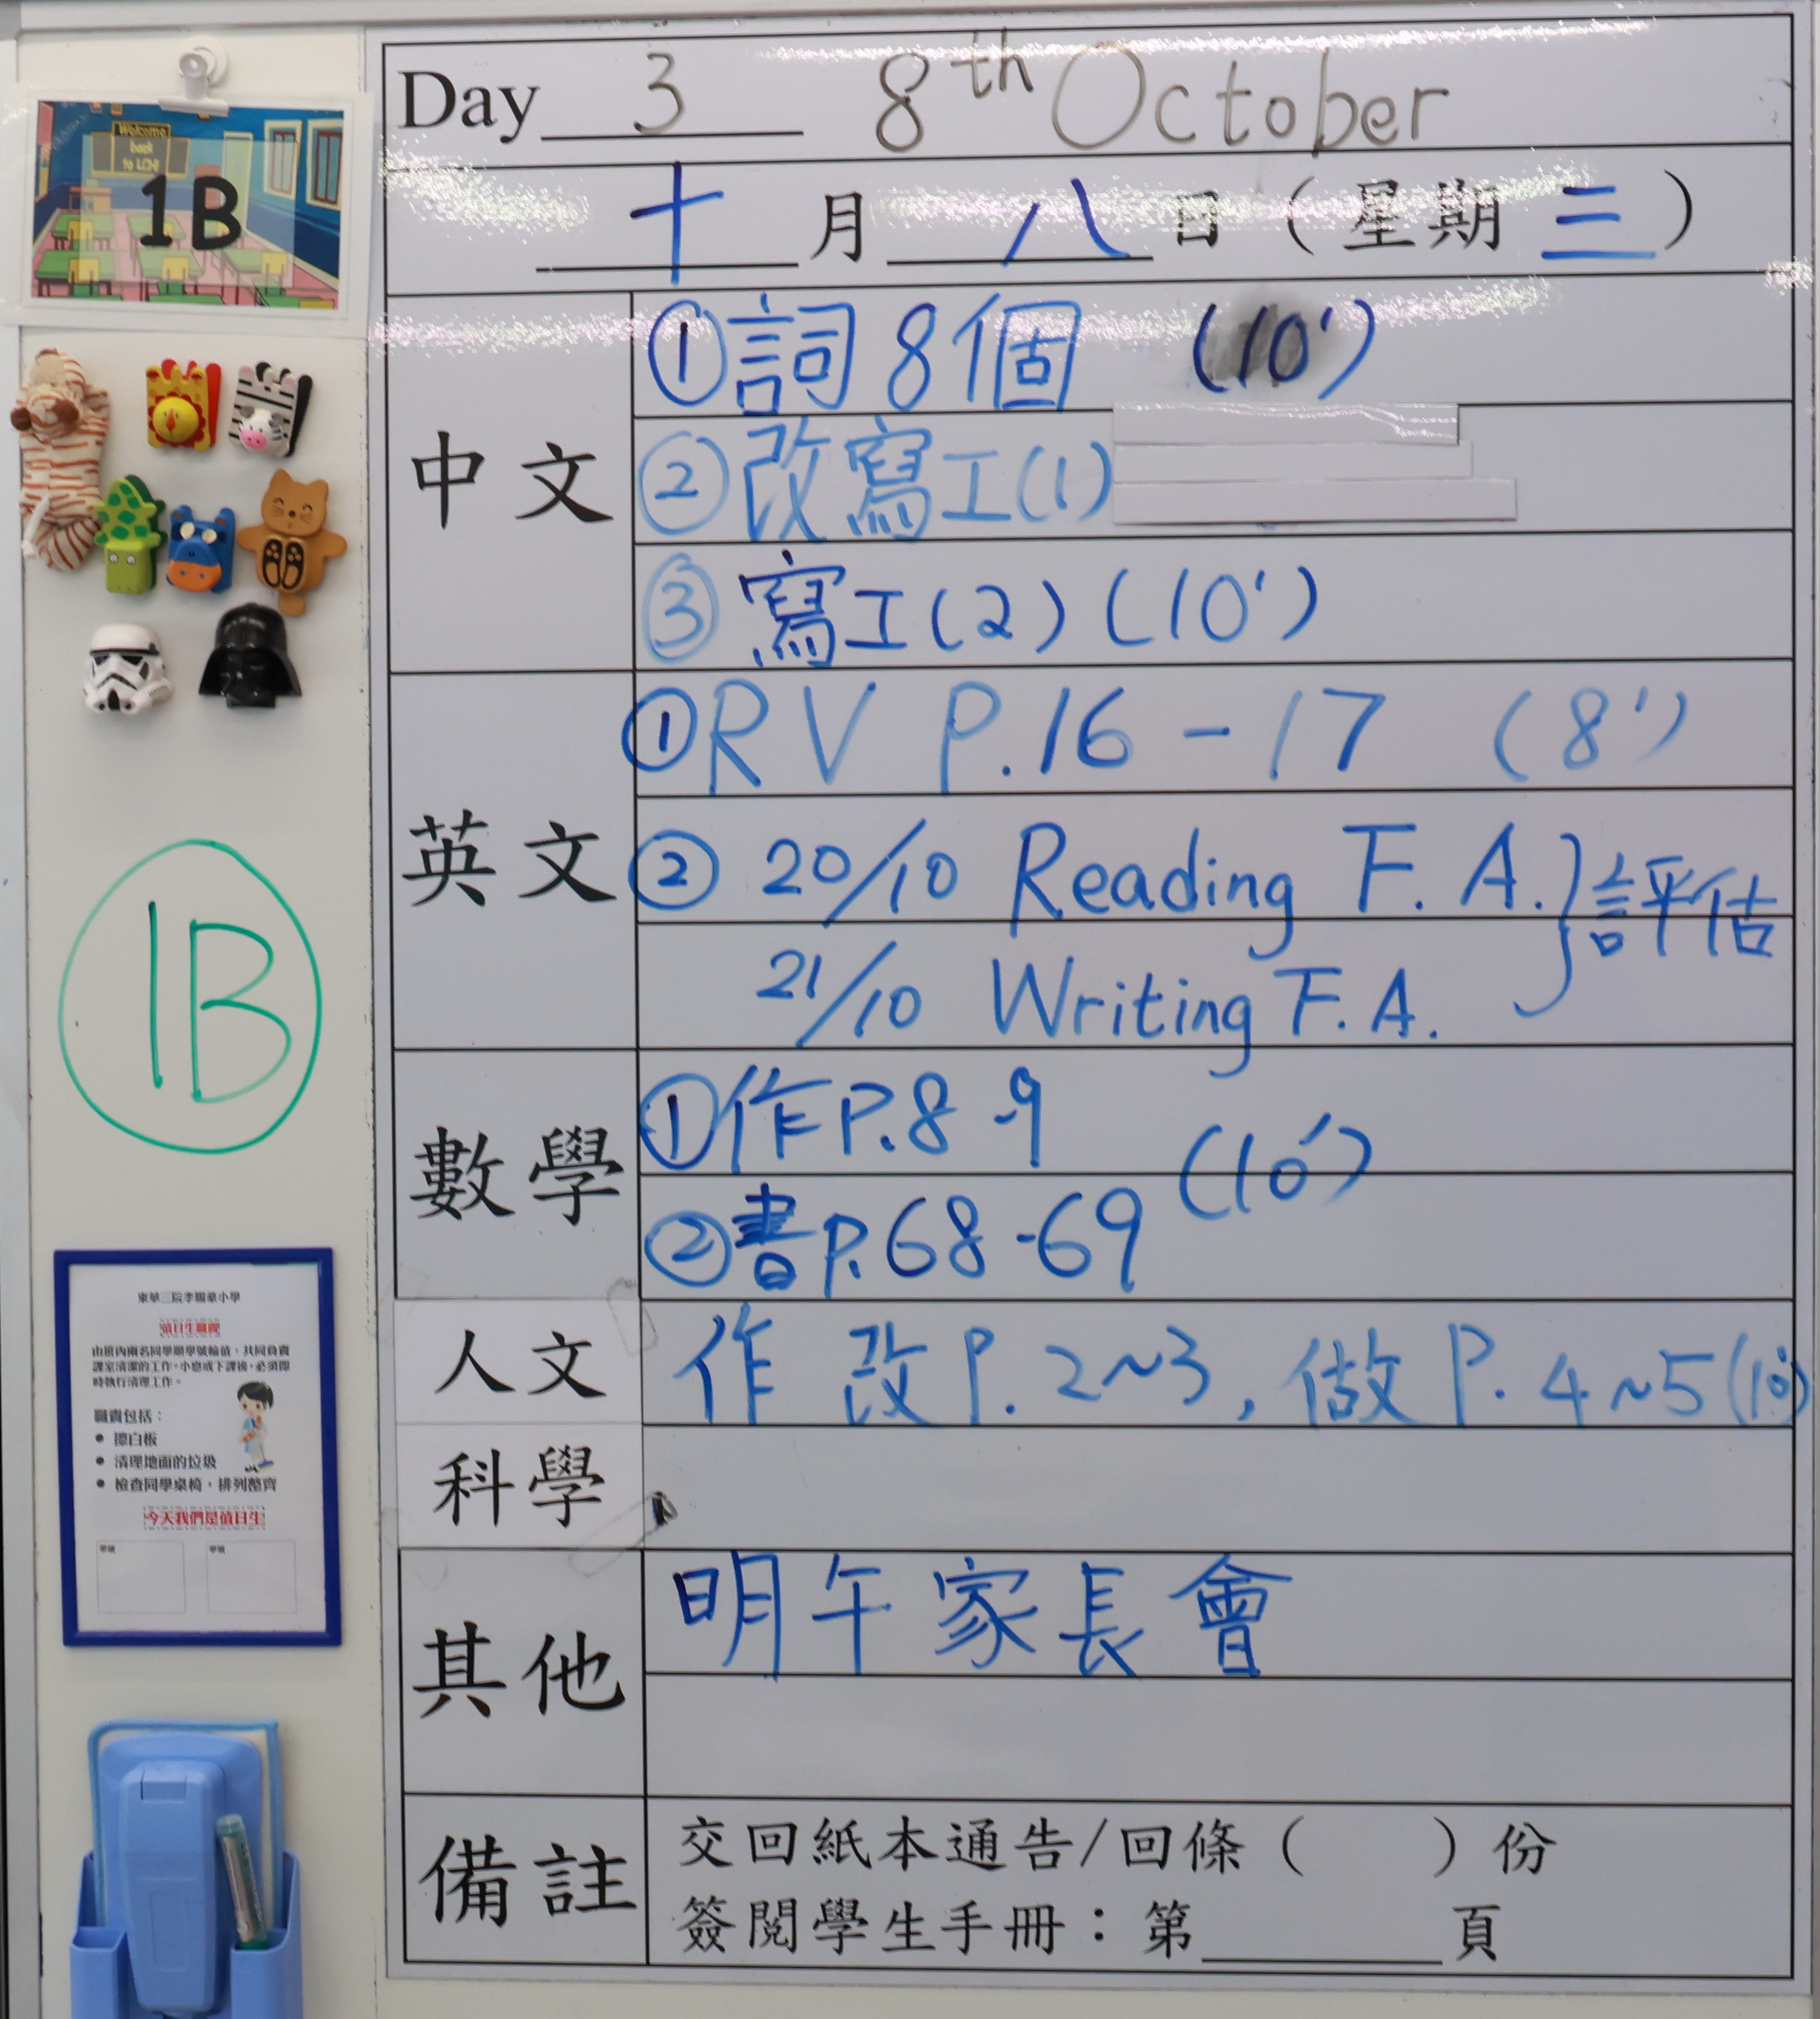 Day 3 8th October
十 月 八 日 ( 星期 三 )
中文
①詞8個 (10')
②改寫工(1)
③寫工(2) (10')
英文
①RV P.16-17 (8')
② 20/10 Reading F.A. } 評估
21/10 Writing F.A.
數學
①作P.8-9
(10')
②書P.68-69
人文
作 改P.2~3, 做P.4~5(10')
科學
其他
明午家長會
備註
交回紙本通告/回條 ( ) 份
簽閱學生手冊:第 頁
Welcome
back
to LCHI
1B
1B
東華三院李賜豪小學
值日生職責
由班內兩名同學順學號輪值,共同負責
課室清潔的工作。小息或下課後,必須即
時執行清理工作。
職責包括:
● 擦白板
● 清理地面的垃圾
● 檢查同學桌椅,排列整齊
今天我們是值日生
學號 學號